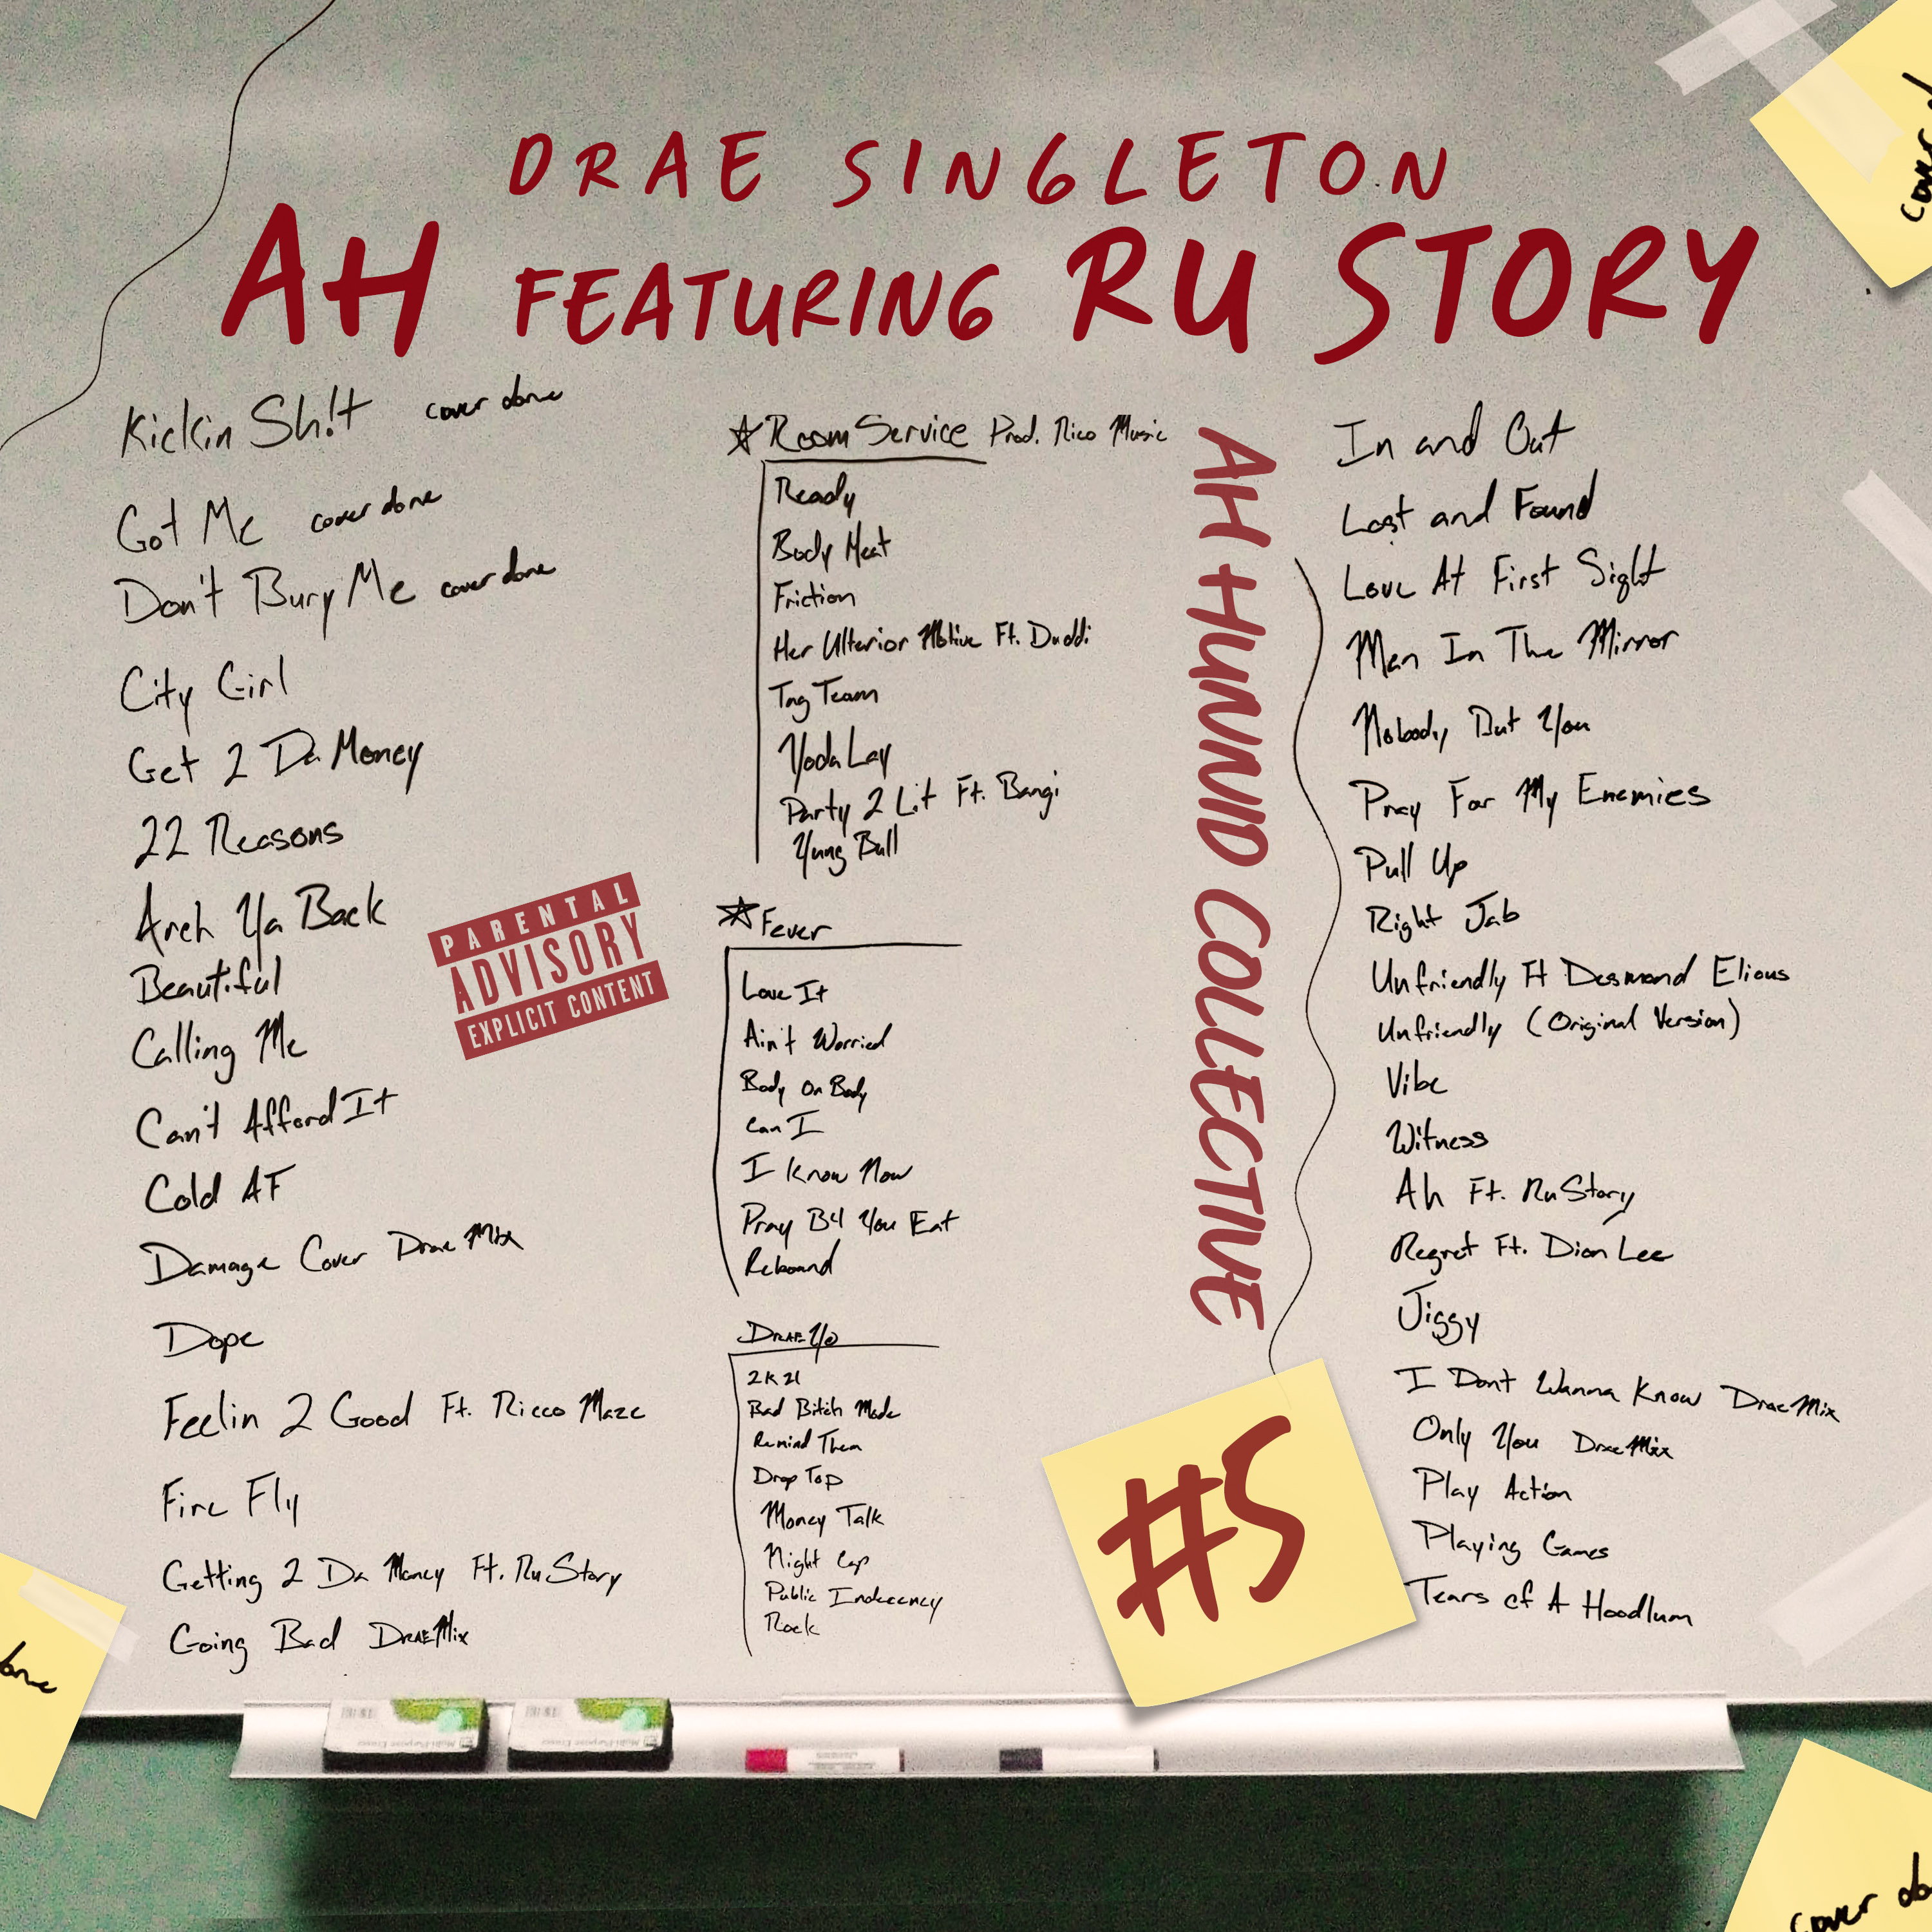 DRAE SINGLETON
AH FEATURING RU STORY
Kickin Sh!t cover done
Got Me cover done
Don't Bury Me cover done
City Girl
Get 2 Da Money
22 Reasons
Arch Ya Back
Beautiful
Calling Me
Can't Afford It
Cold AF
Damage Cover DraeMix
Dope
Feelin 2 Good Ft. Ricco Maze
Fire Fly
Getting 2 Da Money Ft. Ru Story
Going Bad DRAEMix
PARENTAL
ADVISORY
EXPLICIT CONTENT
Room Service Prod. Rico Music
Ready
Body Heat
Friction
Her Ulterior Motive Ft. Duddi
Tag Team
Yoda Lay
Party 2 Lit Ft. Bangi
Yung Bull
Fever
Love It
Ain't Worried
Body On Body
Can I
I Know Now
Pray B4 You Eat
Rebound
DRAE Yo
2K21
Bad Bitch Mode
Remind Them
Drop Top
Money Talk
Night Cap
Public Indecency
Rock
AH HUNNID COLLECTIVE
In and Out
Lost and Found
Love At First Sight
Man In The Mirror
Nobody But You
Pray For My Enemies
Pull Up
Right Jab
Unfriendly Ft Desmond Elious
Unfriendly (Original Version)
Vibe
Witness
Ah Ft. Ru Story
Regret Ft. Dion Lee
Jiggy
I Dont Wanna Know DraeMix
Only You DraeMix
Play Action
Playing Games
Tears of A Hoodlum
#5
cover
cover do